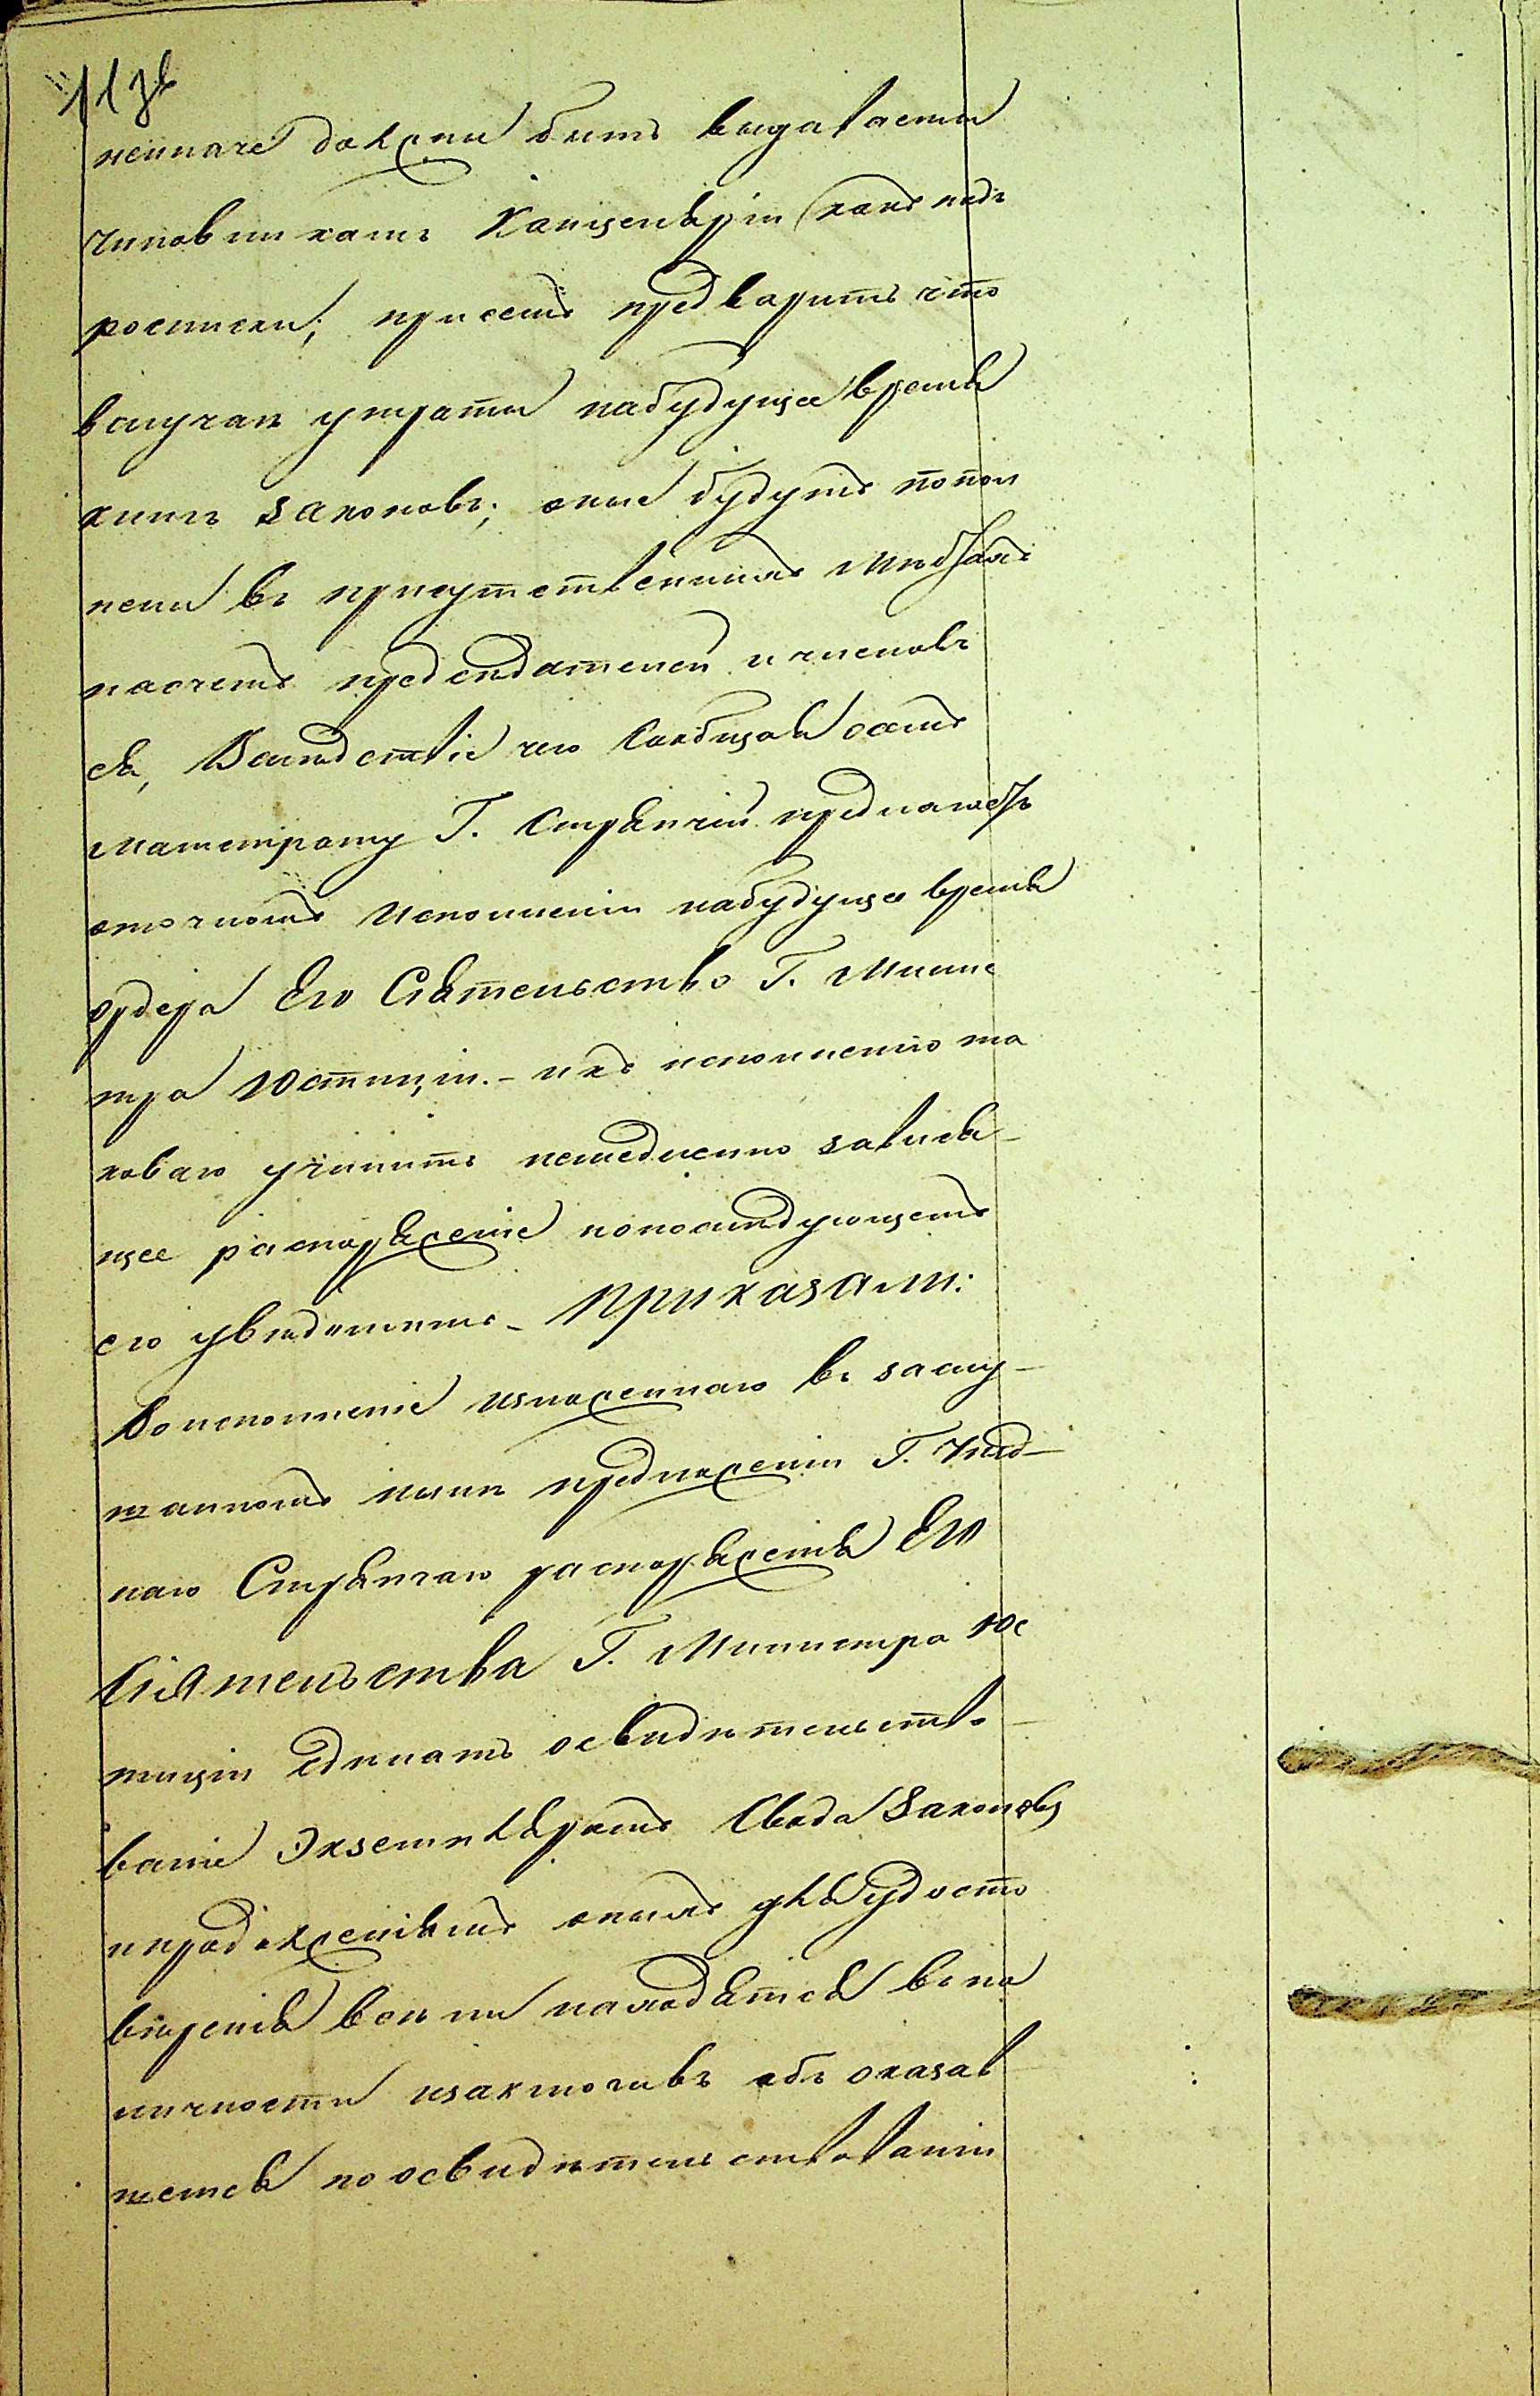 неиначе должны быть выдаваемы
чиновникамъ Канцеляріи какъ подъ
росписки; присемъ предваритъ что
вслучаи утраты набудущее время
книгъ законовъ; оные будутъ попол
нены въ присутственныхъ мѣстахъ
насчетъ предсѣдателей и членовъ
ея, Вслѣдствіе чего сообщая осемъ
магистрату Г. Стряпчій предлагаетъ
оточномъ исполненіи набудущее время
ордера Его Сіятельство Г. Минис
тра Юстиціи. - икъ исполненію та
коваго учинить немедленно завися-
щее распоряженіе ипопослѣдующемъ
его увѣдомить - Приказали:
Во исполненіе изложеннаго въ заслу-
шанномъ нынѣ предложеніи Г. Уѣзд-
наго Стряпчаго распоряженія Его
Сіятельства Г. Министра Юс
тиціи сдѣлать освидѣтельство-
ваніе Экземплярамъ Свода Законовъ
ипродолженіямъ оныхъ для удосто
вѣренія всели находятся въ на
личности изаключивъ объ оказав
шемся по освидѣтельствованіи